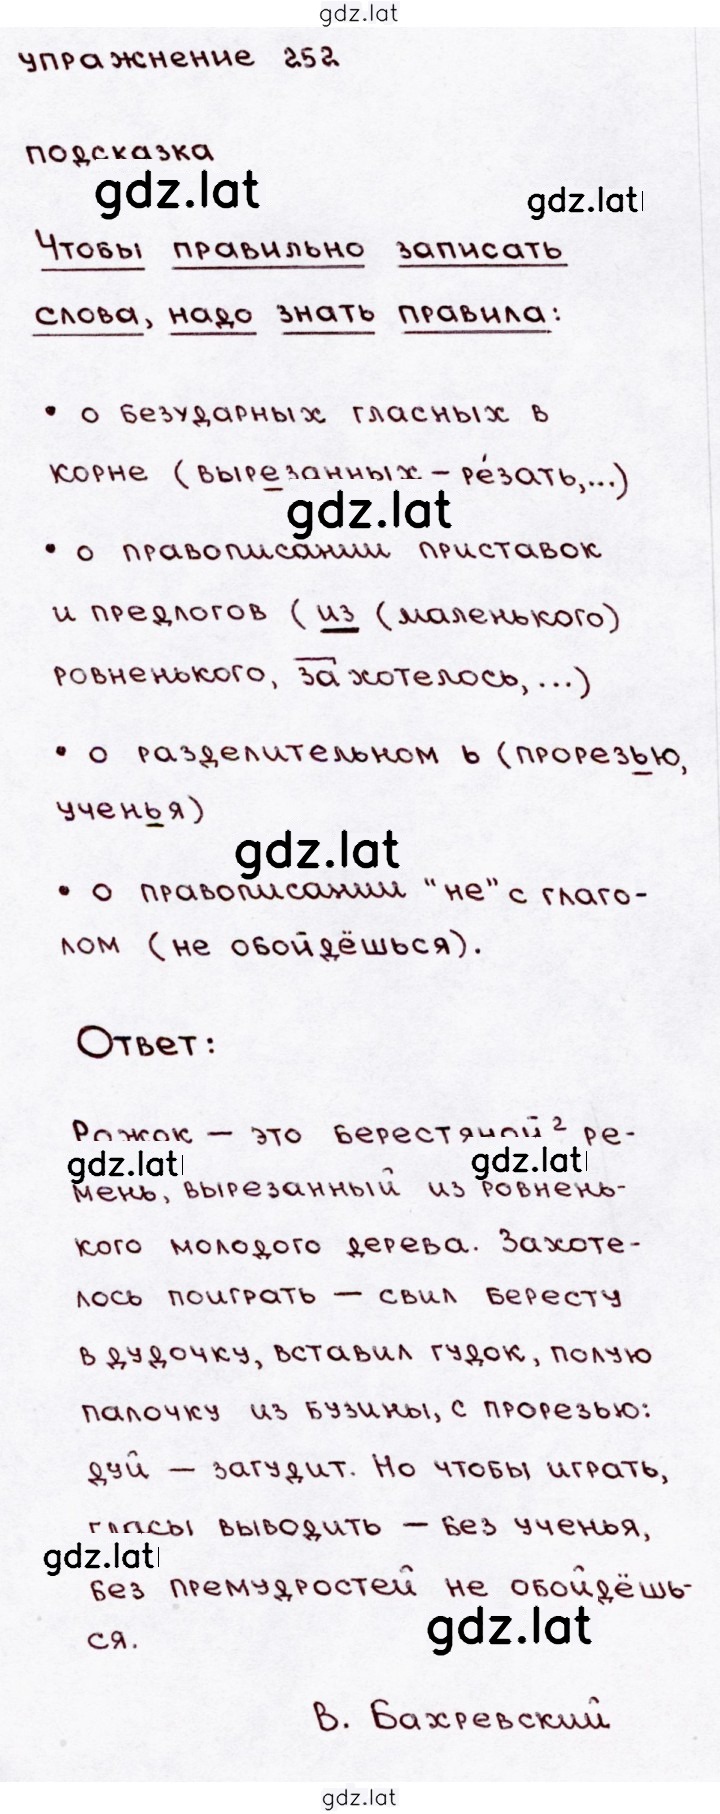 gdz.lat
упражнение 252
подсказка
gdz.lat gdz.lat
Чтобы правильно записать
слова, надо знать правила:
• о безударных гласных в
корне (вырезанных – ре́зать,...)
gdz.lat
• о правописании приставок
и предлогов (из (маленького)
ровненького, захотелось, ...)
• о разделительном ь (прорезью,
ученья)
gdz.lat
• о правописании "не" с глаго-
лом (не обойдёшься).
Ответ:
Рожок – это берестяной² ре-
gdz.lat gdz.lat
мень, вырезанный из ровнень-
кого молодого дерева. Захоте-
лось поиграть – свил бересту
в дудочку, вставил гудок, полую
палочку из бузины, с прорезью:
дуй – загудит. Но чтобы играть,
гласы выводить – без ученья,
gdz.lat
без премудростей не обойдёшь-
ся.
gdz.lat
В. Бахревский
gdz.lat